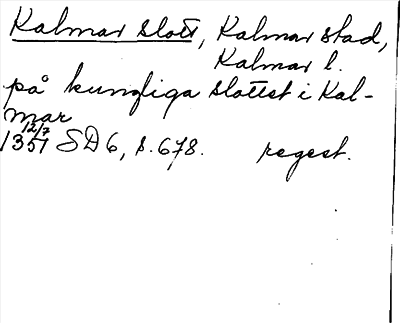 Kalmar slott, Kalmar stad,
Kalmar l.
på kungliga slottet i Kal-
mar
12/7
1351 SD 6, s. 678. regest.